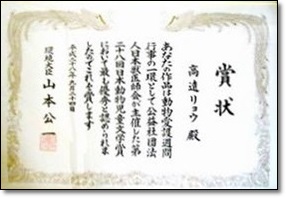 賞状
高遠リョウ 殿
あなたの作品は動物愛護週間
行事の一環として公益社団法
人日本獣医師会が主催した第
二十八回日本動物児童文学賞
において最も優秀と認められま
したのでこれを賞します
平成二十八年九月二十四日
環境大臣 山本公一